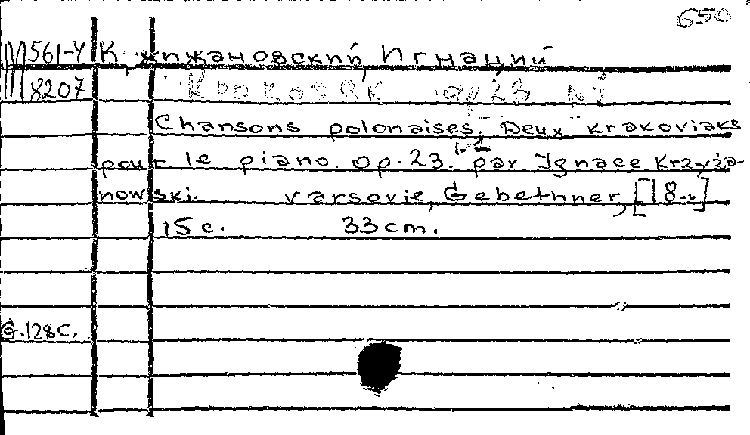 650
М 561-4 Кжижановский, Игнаций
8207 Краковяк op.23 №1
Chansons polonaises; Deux krakoviaks
pour le piano. Op.23. 1-2 par Ignace Krzyża-
nowski. Varsovie, Gebethner, [18--]
15 c. 33 cm.
G.128C.